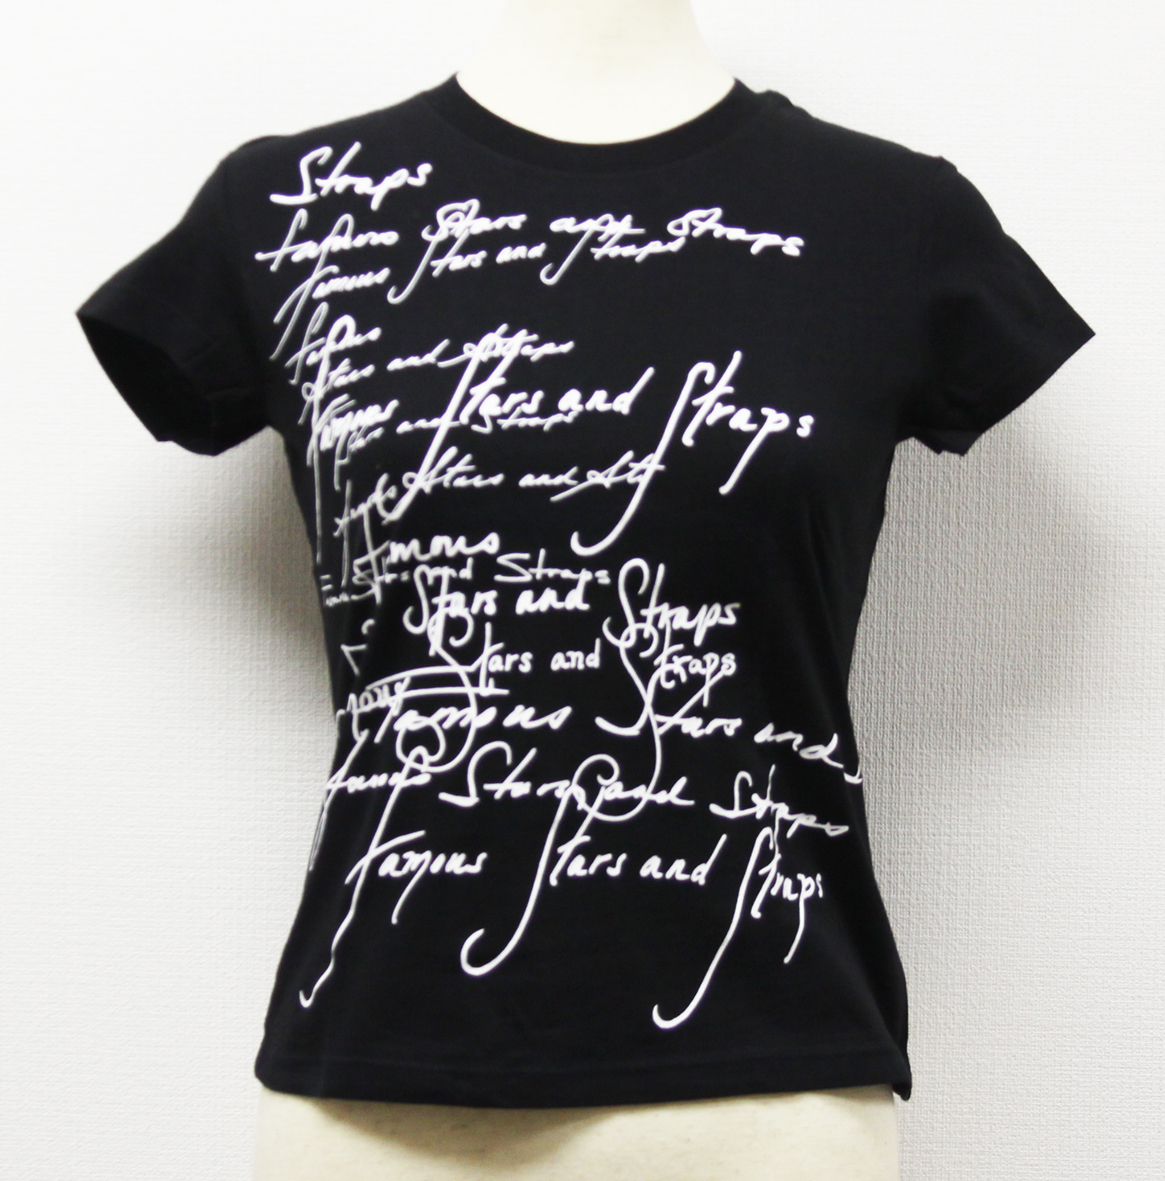 Straps
famous Stars and Straps
Famous Stars and Straps
Famous
Stars and Straps
Famous Stars and Straps
Stars and Straps
Stars and
Famous
Stars and Straps
Stars and Straps
Stars and Straps
Famous Stars and
Famous Stars and Straps
Famous Stars and Straps